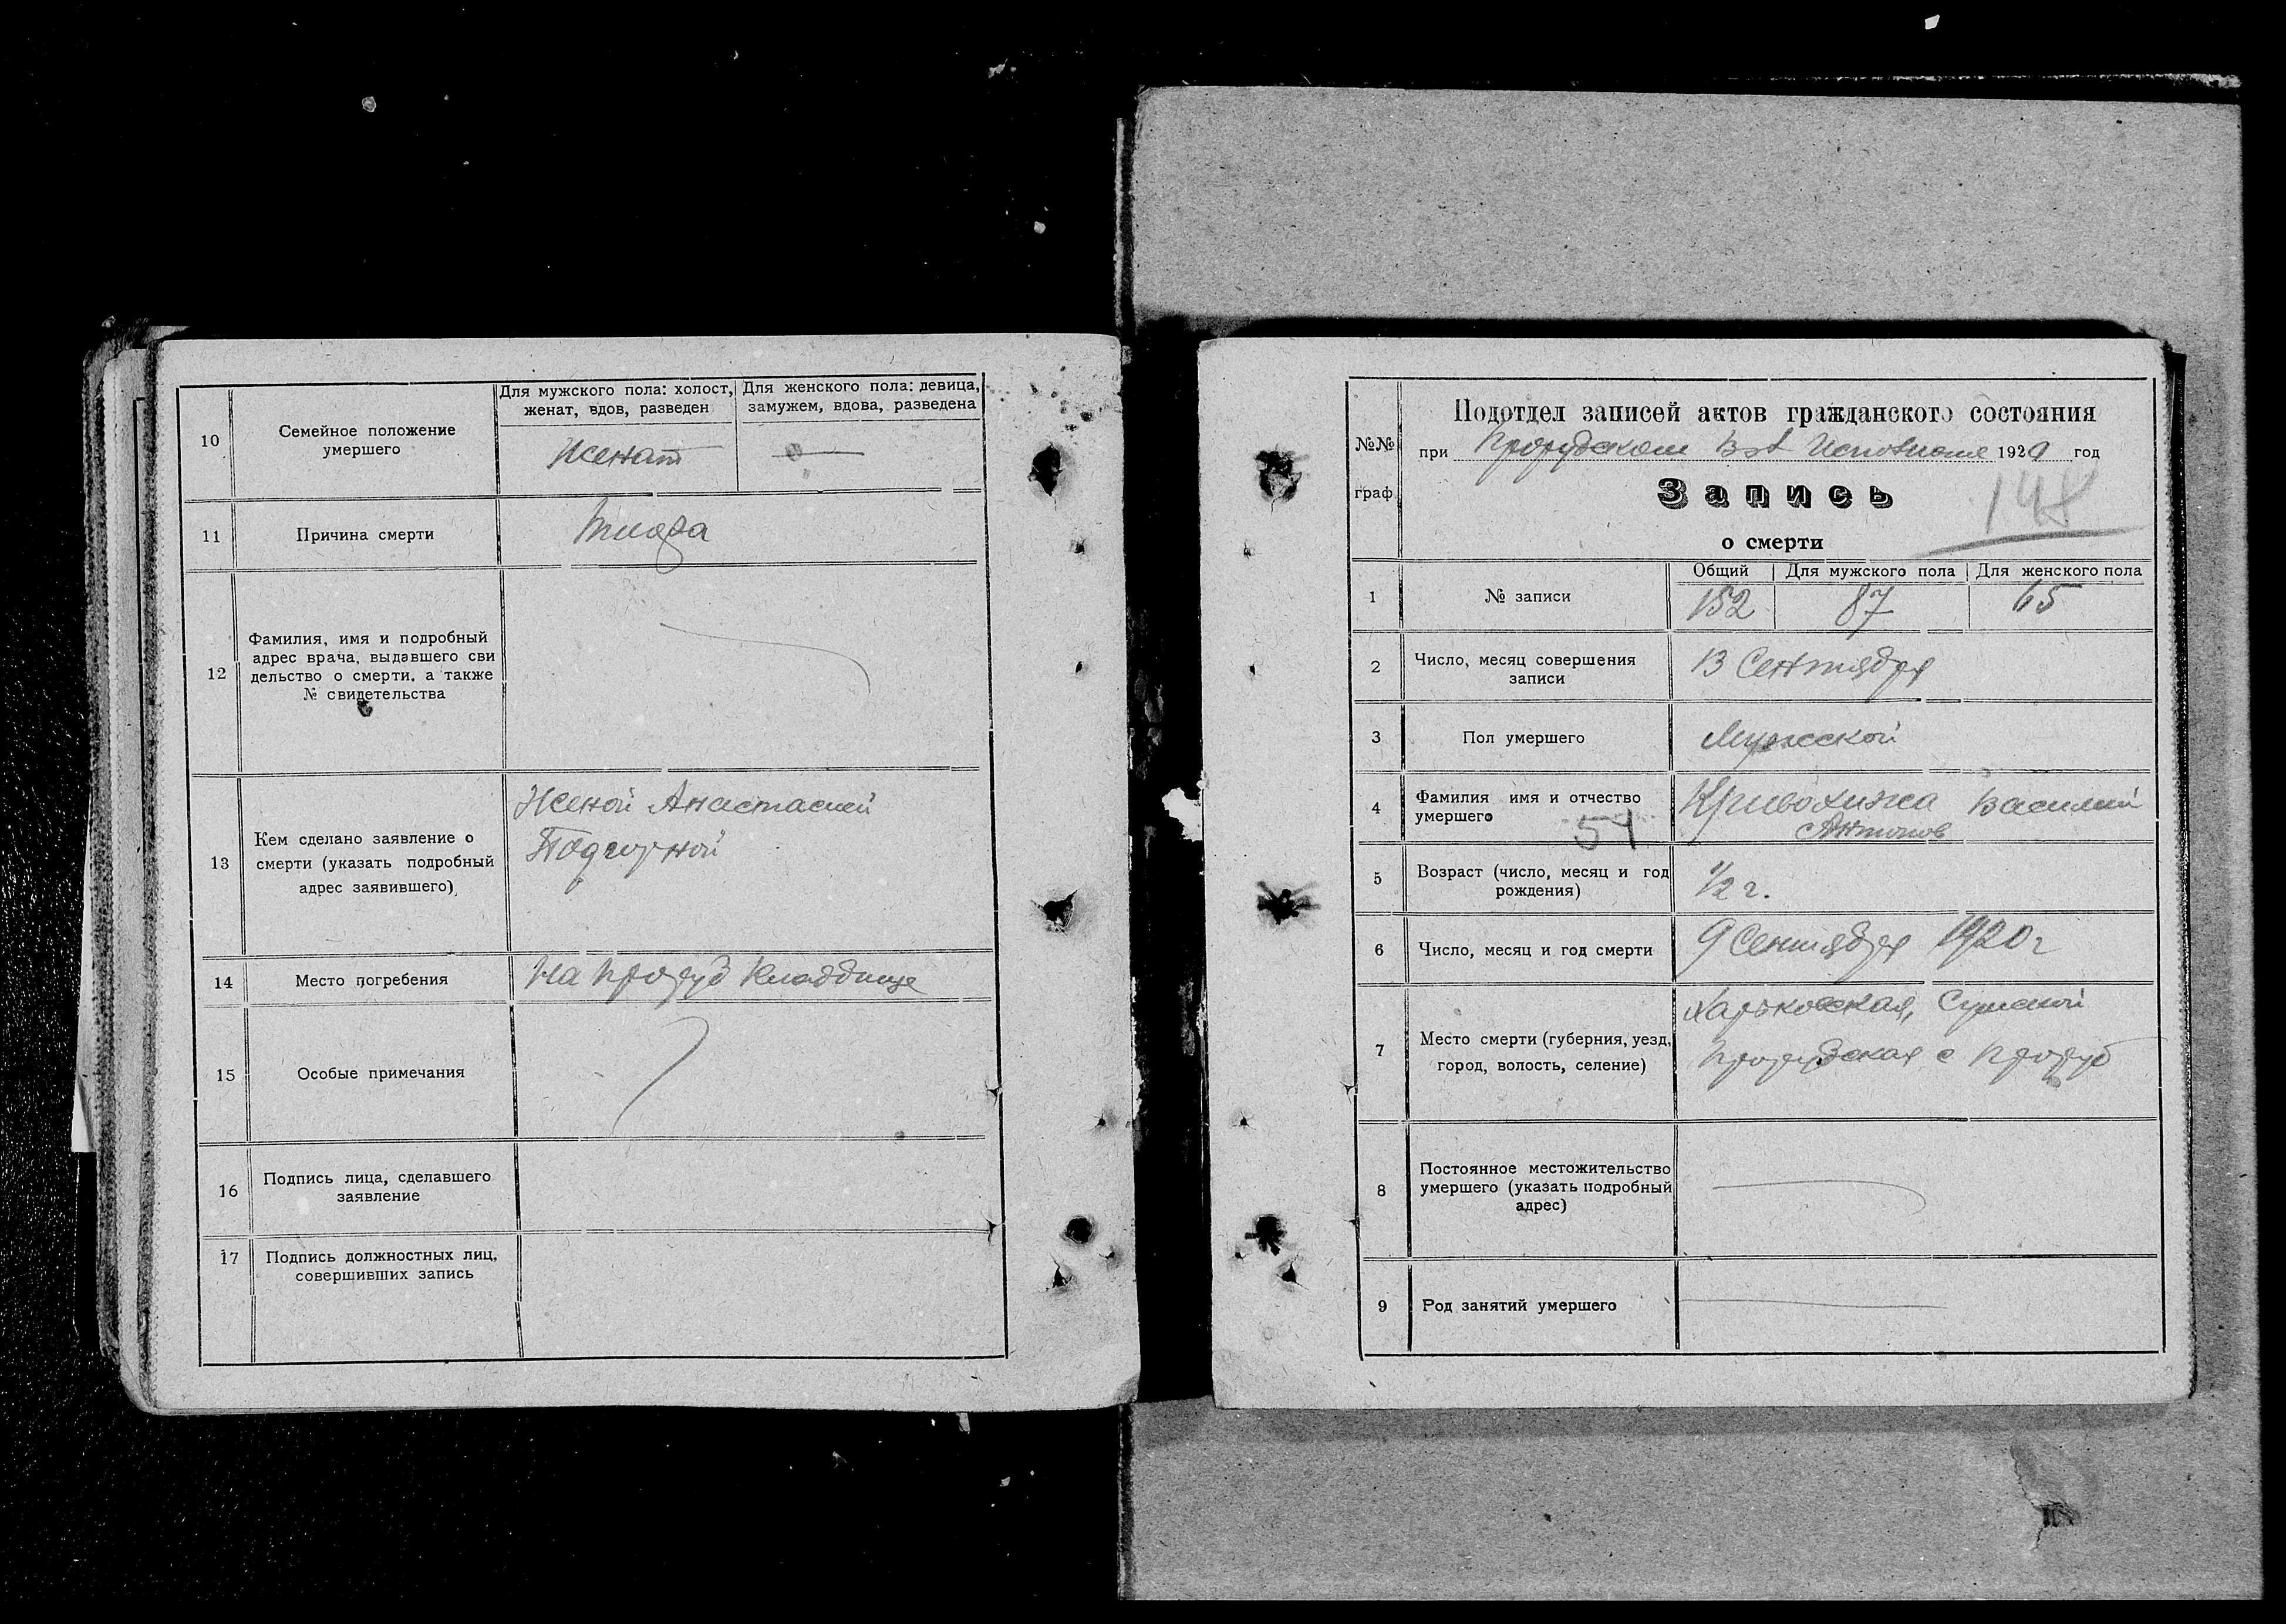 10
Семейное положение
умершего
Для мужского пола: холост,
женат, вдов, разведен
Для женского пола: девица,
замужем, вдова, разведена
Женат
11
Причина смерти
12
Фамилия, имя и подробный
адрес врача, выдавшего сви
дельство о смерти, а также
№ свидетельства
13
Кем сделано заявление о
смерти (указать подробный
адрес заявившего)
Женой Анастасией
Подгорной
14
Место погребения
На Проруб Кладдище
15
Особые примечания
16
Подпись лица, сделавшего
заявление
17
Подпись должностных лиц,
совершивших запись
№№
граф
Подотдел записей актов гражданского состояния
при Прорубском Исполкоме 1920 год
Запись
148
о смерти
1
№ записи
Общий
Для мужского пола
Для женского пола
152
87
65
2
Число, месяц совершения
записи
13 Сентября
3
Пол умершего
Мужской
4
Фамилия имя и отчество
умершего
54
Василий
Антонов
5
Возраст (число, месяц и год
рождения)
1/2 г.
6
Число, месяц и год смерти
9 Сентября 1920 г
7
Место смерти (губерния, уезд,
город, волость, селение)
Харьковская, Сумской
Прорубская с Проруб
8
Постоянное местожительство
умершего (указать подробный
адрес)
9
Род занятий умершего